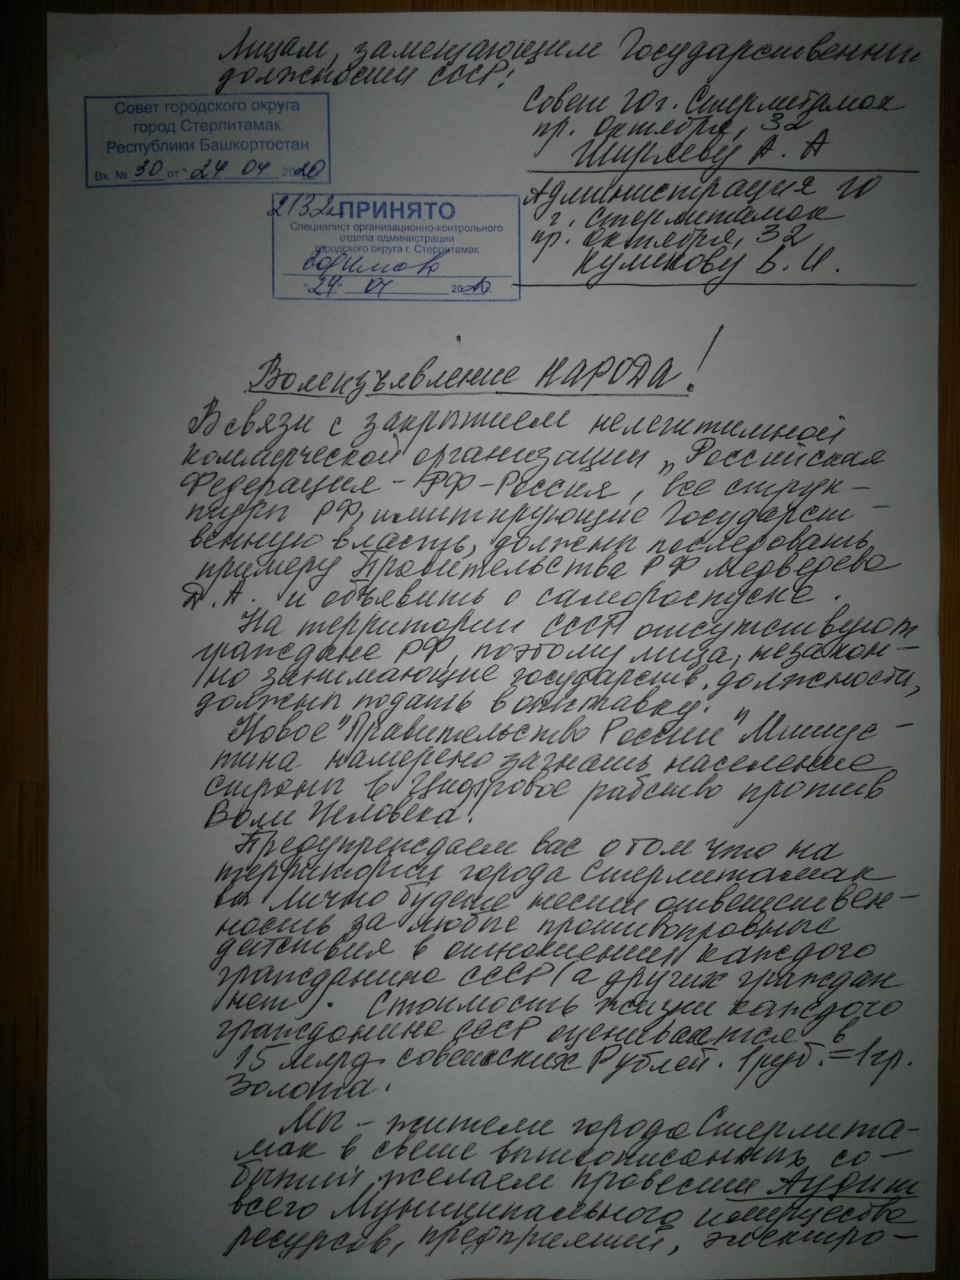 Лицам, замещающим Государственные
должности СССР:
Совет городского округа
город Стерлитамак
Республики Башкортостан
Вх. № 30 от "24 04 2020
Совет ГО г. Стерлитамак
пр. Октября, 32
Ширяеву А. А
2132
ПРИНЯТО
Специалист организационно-контрольного
отдела администрации
городского округа г. Стерлитамак
"24" 04 2020
Администрация ГО
г. Стерлитамак
пр. Октября, 32
Куликову В. И.
Волеизъявление НАРОДА!
В связи с закрытием нелегитимной
коммерческой организации "Российская
Федерация - РФ - Россия, все струк-
туры РФ, имитирующие Государст-
венную власть, должны последовать
примеру Правительства РФ Медведева
Д.А. и объявить о самороспуске.
На территории СССР отсутствуют
граждане РФ, поэтому лица, незакон-
но занимающие государств. должности,
должны подать в отставку.
Новое "Правительство России" Мишус-
тина намерено загнать население
страны в Цифровое рабство против
Воли Человека!
Предупреждаем вас о том что на
территории города Стерлитамак
вы лично будете нести ответствен-
ность за любые противоправные
действия в отношении каждого
гражданина СССР (а других граждан
нет). Стоимость жизни каждого
гражданина СССР оценивается в
15 млрд. советских Рублей. 1 руб. = 1 гр.
Золота.
Мы - жители города Стерлита-
мак в свете вышеописанных со-
бытий желаем провести Аудит
всего Муниципального имущества
ресурсов, предприятий, электро-